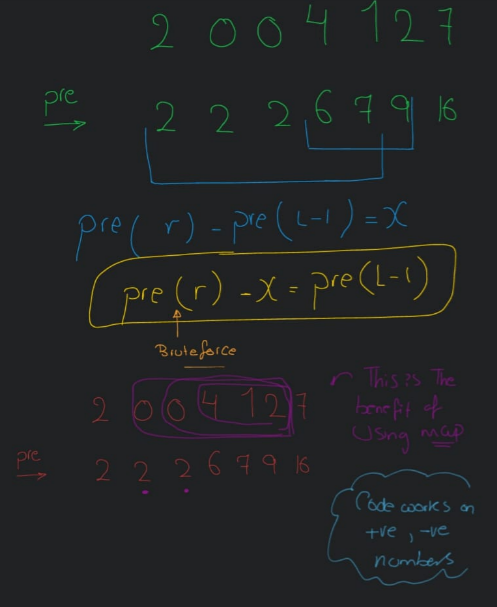 2 0 0 4 1 2 7
pre 2 2 2 6 7 9 16
pre( r) - pre(L-1) = x
pre(r) - x = pre(L-1)
Bruteforce
This is The
benefit of
Using map
2 0 0 4 1 2 7
pre 2 2 2 6 7 9 16
Code works on
+ve, -ve
numbers